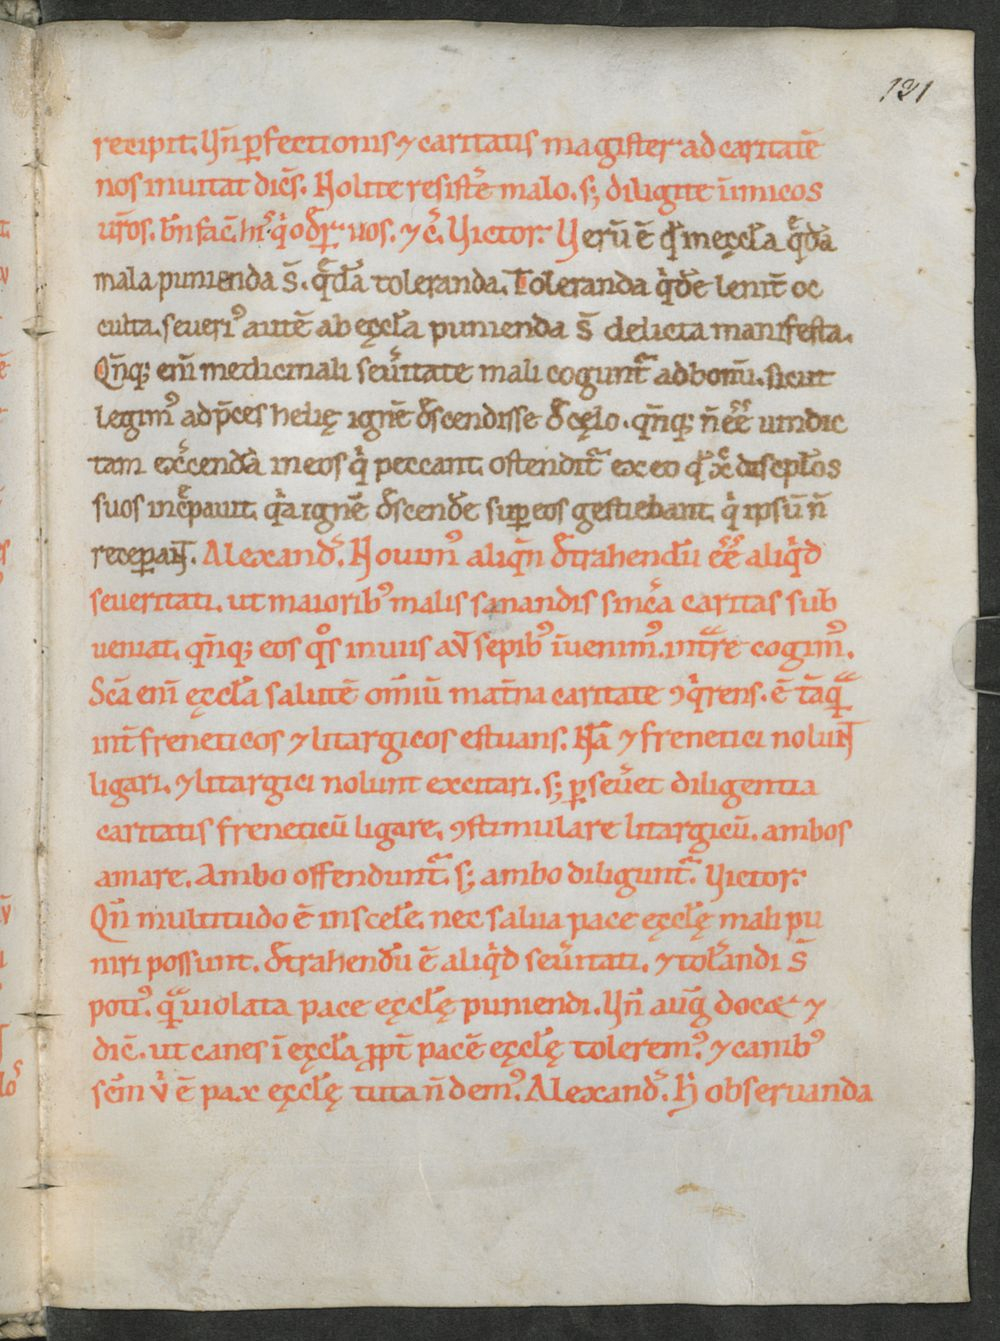 121
recipit. Vn̄ ꝑfectionis ⁊ caritatis magister ad caritatē
nos inuitat dic̄s. Nolite resistẽ malo. s; diligite inimicos
ur̄os. bn̄ fac̄. hi͛s qͥ oder̄ uos. ⁊ c̄. Victor. Verū ē qd̄ in ęccl̄a q̄dā
mala punienda s̄. q̄dā toleranda. Toleranda qͥdē lenit̄ oc
culta. seueriꝰ autē ab ęccl̄a punienda s̄ delicta manifesta.
Qn̄q; eni̅ medicinali seu͛itate mali cogunt᷑ ad bonū. sicut
legimꝰ ad p̄ces helię ignē descendisse de cęlo. qn̄q; n̄ ee̅ uindic
tam ex͛cendā in eos qͥ peccant. ostendit᷑ ex eo qd̄ xp̄c discipl̄os
suos inc͛pauit. qͥa ignē descende̅ suꝑ eos gestiebant. qͥ ipsū n̄
receꝑant. Alexand͛. Nouimꝰ aliqn̄ detrahendū ee̅ aliqͥd
seueritati. ut maioribꝰ malis sanandis sinc͛a caritas sub
ueniat. qn̄q; eos qͦs in uiis aut sepibꝰ īuenimꝰ. intrare cogimꝰ.
Sc̄a eni̅ ęccl̄a salutē om̄iū mat̄na caritate ꝯqͥrens. ē tāqͣ
int̄ freneticos ⁊ litargicos estuans. Nā ⁊ frenetici nolunt
ligari. ⁊ litargici nolunt excitari. s; ꝑseu͛et diligentia
caritatis freneticū ligare, ꝯstimulare litargicū. ambos
amare. Ambo offendunt᷑. s; ambo diligunt᷑. Victor.
Qn̄ multitudo ē in scel̄e. nec salua pace ęccl̄ę mali pu
niri possunt. detrahendū ē aliqͥd seu͛itati. ⁊ tol͛andi s̄
potiꝰ. qͣ uiolata pace ęccl̄ę puniendi. Vn̄ aug̅ docet ⁊
dic̄. ut canes ī ęccl̄a ꝓpt̄ pacē ęccl̄ę toleremꝰ. ⁊ canibꝰ
sc̄m uͥ ē pax ęccl̄ę tuta n̄ demꝰ. Alexand͛. H̄ obseruanda